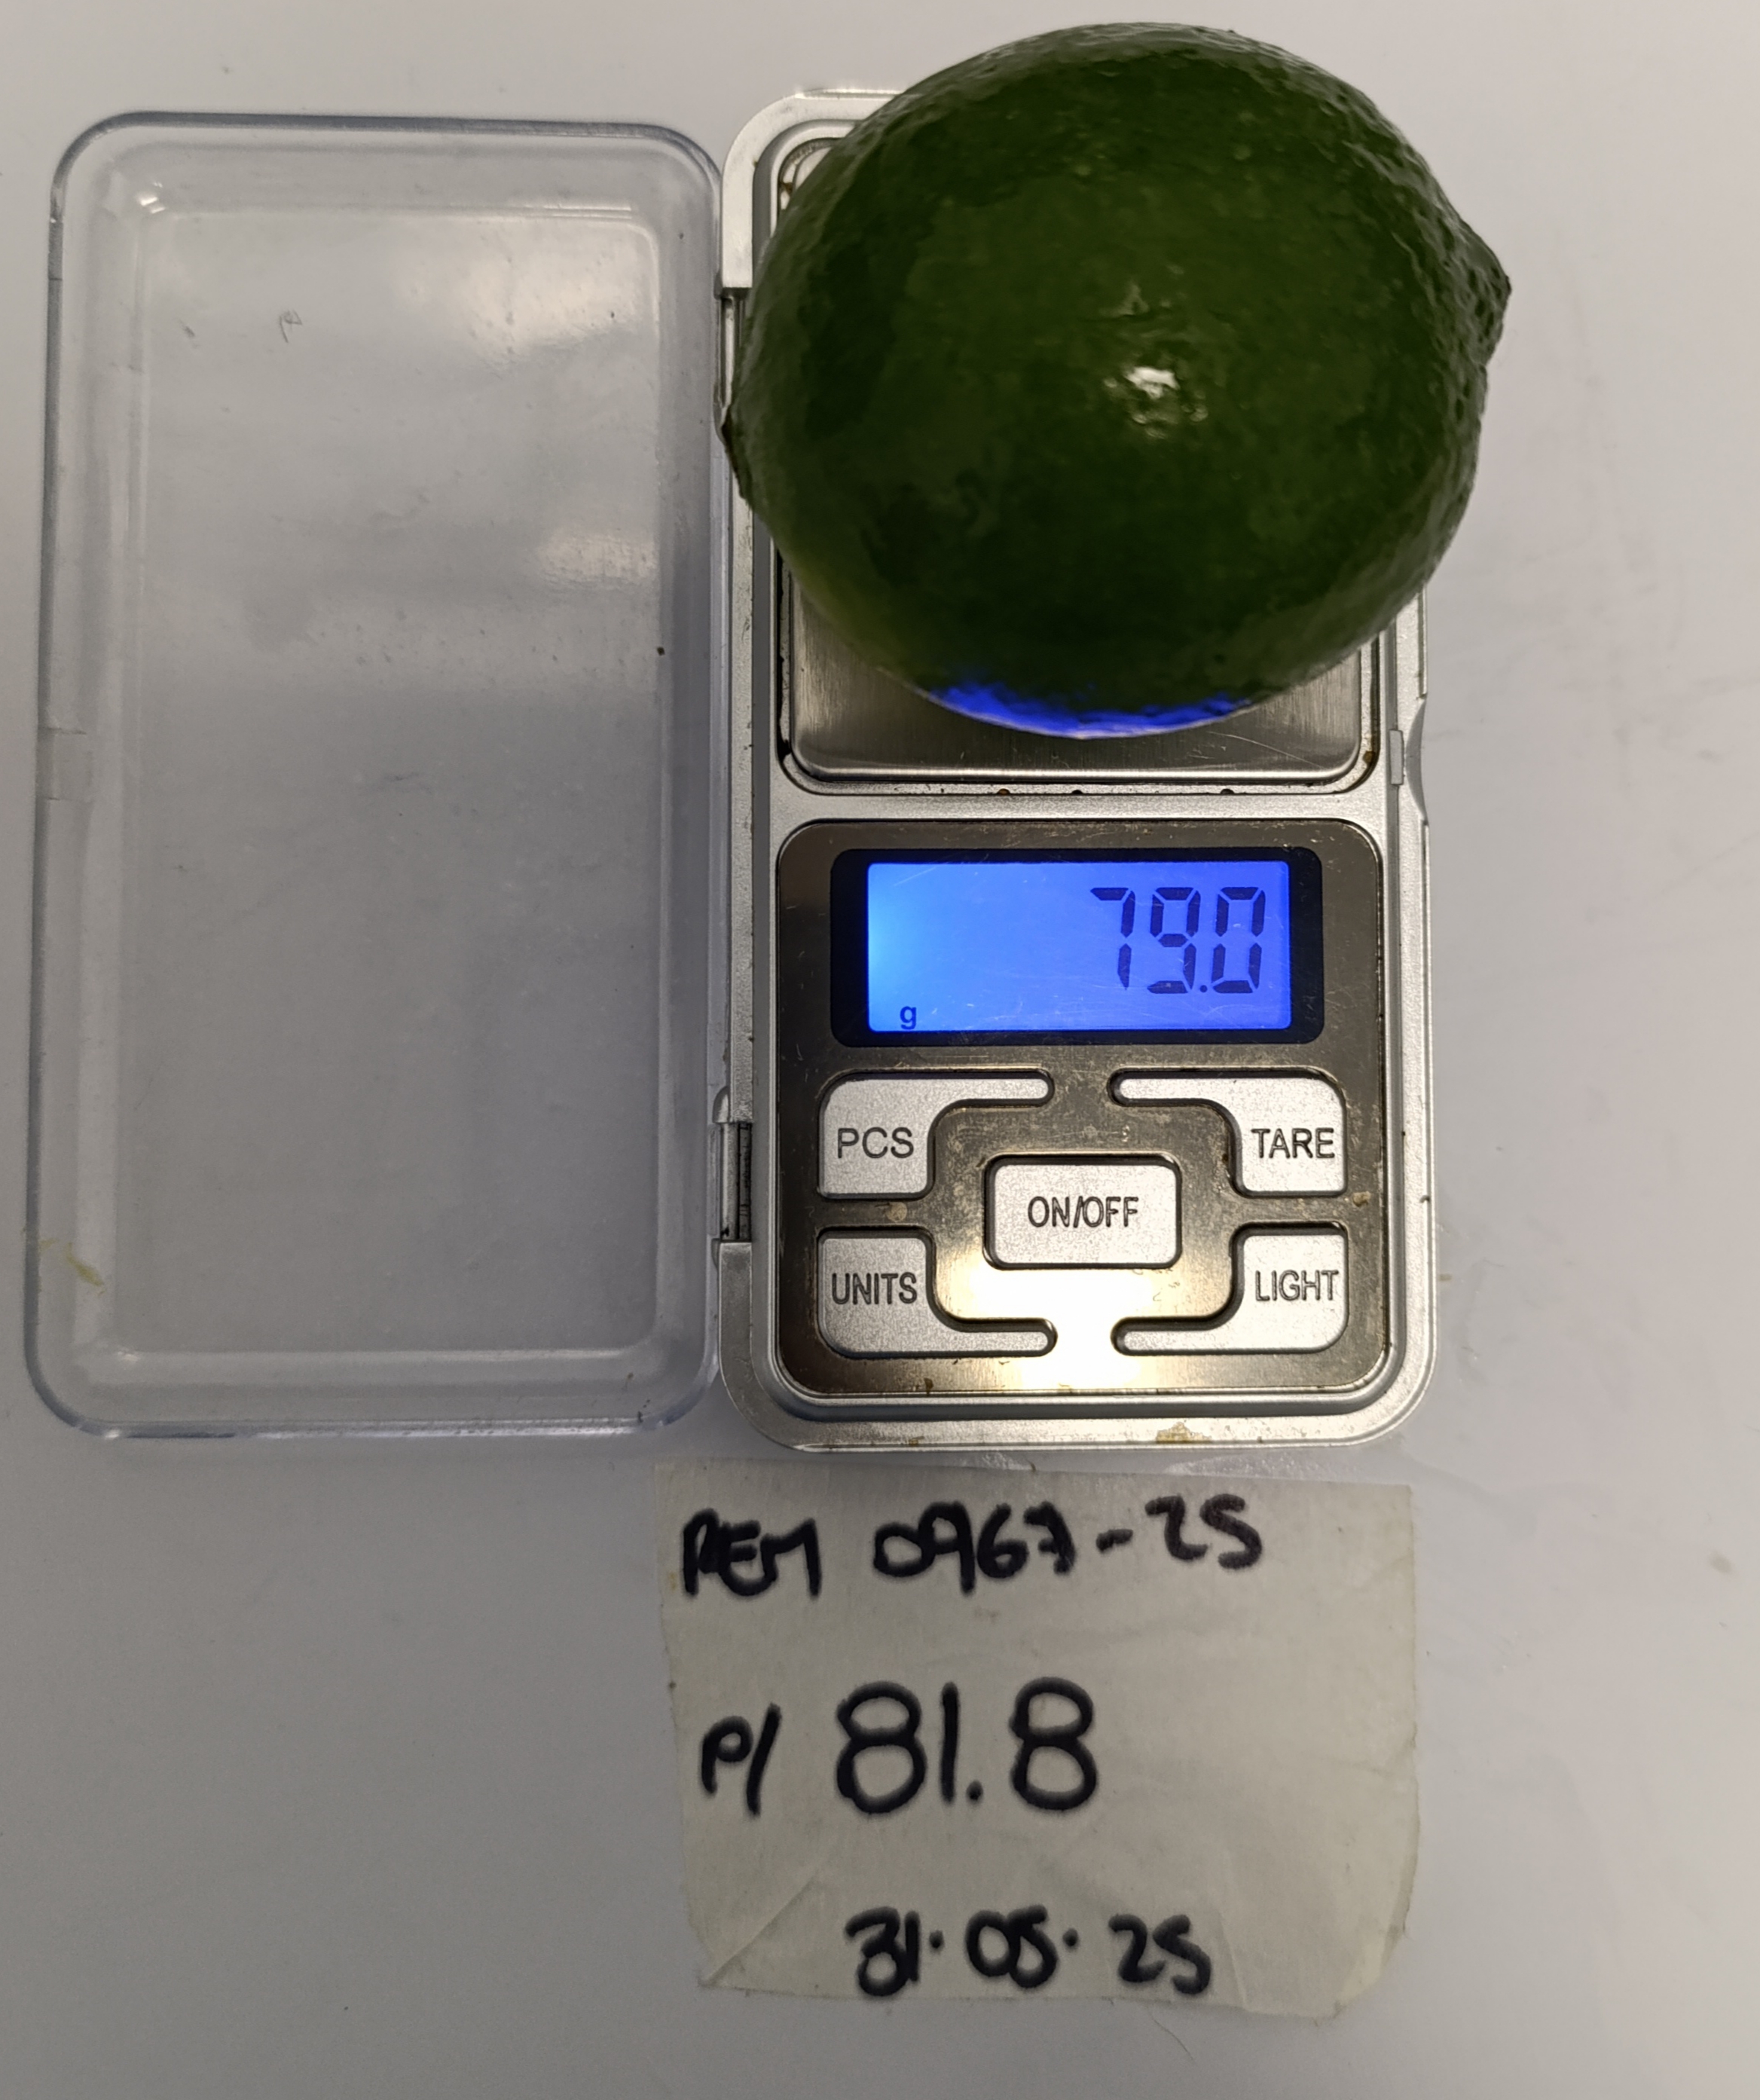 79.0
g
PCS
TARE
ON/OFF
UNITS
LIGHT
REM 0967-25
P/ 81.8
31.05.25